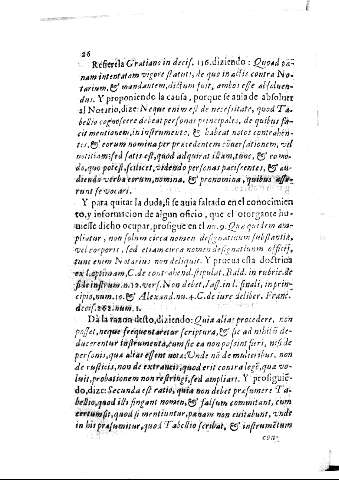 26
Refiere la Gratians in decis. 116. diziendo: Quoad pœ-
nam intentatam vigore statuti, de quo in actis contra No-
tarium, & mandantem, dictum fuit, ambos esse absoluen-
dus. Y proponiendo la causa, porque se auia de absoluer
al Notario, dize: Neque enim est de necesitate, quod Ta-
bellio cognoscere debeat personas principales, de quibus fa-
cit mentionem, in instrumento, & habeat notos contrahen-
tes, & eorum nomina per præcedentem cõuersationem, vel
notitiam: sed satis est, quod adquirat illam, tunc, & como-
do, quo potest, scilicet, videndo personas paciscentes, & au-
diendo verba eorum, nomina, & pronomina, quibus asse-
runt se vocari.
Y para quitar la duda, si se auia faltado en el conocimien
to, y informacion de algun oficio, que el otorgante hu-
uesse dicho ocupar, prosigue en el nu. 9. Quæ quidem am-
pliatur, non solum circa nomen designatiuum substantiæ,
vel corporis, sed etiam circa nomen designatiuum officij,
tunc enim Notarius non deliquit. Y prueua esta doctrina
ex l. optimam, C. de contrahend. stipulat. Bald. in rubric. de
fide instrum. n. 12. vers. Non debet, Iass. in l. finali, in prin-
cipio, num. 10. & Alexand. nu. 4. C. de iure deliber. Franc.
decis. 262. num. 1.
Dà la razon desto, diziendo: Quia aliàs procedere, non
posset, neque frequentaretur scriptura, & sic ad nihilũ de-
ducerentur instrumenta, cum sic ea non possint fieri, nisi de
personis, quæ alias essent notæ: Vnde nõ de mulieribus, non
de rusticis, non de extraneis, quod erit contra legẽ, quæ vo-
luit, probationem non restringi, sed ampliari. Y prosiguiẽ-
do, dize: Secunda est ratio, quia non debet præsumere Ta-
bellio, quod illi fingant nomen, & falsum commitant, cum
certum sit, quod si mentiuntur, pœnam non euitabunt, vnde
in his præsumitur, quod Tabellio scribat, & instrumẽtum
con-